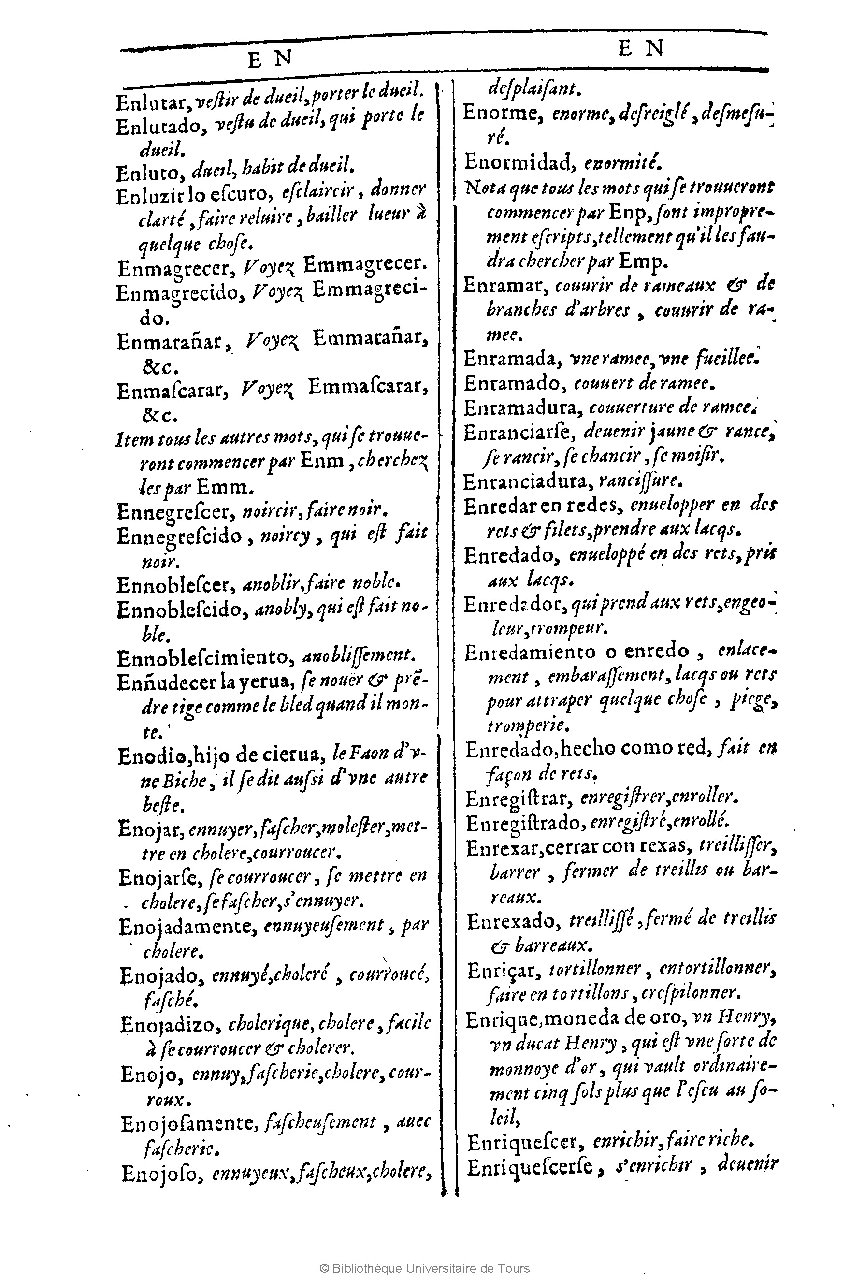 E N
Enlutar, veſtir de dueil, porter le dueil.
Enlutado, veſtu de dueil, qui porte le
dueil.
Enluto, dueil, habit de dueil.
Enluzir lo eſcuro, eſclaircir, donner
clarté, faire reluire, bailler lueur à
quelque choſe.
Enmagrecer, Voyez Emmagrecer.
Enmagrecido, Voyez Emmagreci-
do.
Enmarañar, Voyez Emmarañar,
&c.
Enmaſcarar, Voyez Emmaſcarar,
&c.
Item tous les autres mots, qui ſe trouue-
ront commencer par Enm, cherchez
les par Emm.
Ennegreſcer, noircir, faire noir.
Ennegreſcido, noircy, qui eſt fait
noir.
Ennobleſcer, anoblir, faire noble.
Ennobleſcido, anobly, qui eſt fait no-
ble.
Ennobleſcimiento, anobliſſement.
Enñudecer la yerua, ſe nouer & prẽ-
dre tige comme le bled quand il mon-
te.
Enodio, hijo de cierua, le Faon d'v-
ne Biche, il ſe dit auſsi d'vne autre
beſte.
Enojar, ennuyer, faſcher, moleſter, met-
tre en cholere, courroucer.
Enojarſe, ſe courroucer, ſe mettre en
cholere, ſe faſcher, s'ennuyer.
Enojadamente, ennuyeuſement, par
cholere.
Enojado, ennuyé, choleré, courroucé,
faſché.
Enojadizo, cholerique, cholere, facile
à ſe courroucer & cholerer.
Enojo, ennuy, faſcherie, cholere, cour-
roux.
Enojoſamente, faſcheuſement, auec
faſcherie.
Enojoſo, ennuyeux, faſcheux, cholere,
E N
deſplaiſant.
Enorme, enorme, deſreiglé, deſmeſu-
ré.
Enormidad, enormité.
Nota que tous les mots qui ſe trouueront
commencer par Enp, ſont impropre-
ment eſcripts, tellement qu'il les fau-
dra chercher par Emp.
Enramar, couurir de rameaux & de
branches d'arbres, couurir de ra-
mee.
Enramada, vne ramee, vne fueillee.
Enramado, couuert de ramee.
Enramadura, couuerture de ramee.
Enranciarſe, deuenir jaune & rance,
ſe rancir, ſe chancir, ſe moiſir.
Enranciadura, ranciſſure.
Enredar en redes, enuelopper en des
rets & filets, prendre aux lacqs.
Enredado, enueloppé en des rets, pris
aux lacqs.
Enredador, qui prend aux rets, engeo-
leur, trompeur.
Enredamiento o enredo, enlace-
ment, embaraſſement, lacqs ou rets
pour attraper quelque choſe, piege,
tromperie.
Enredado, hecho como red, fait en
façon de rets.
Enregiſtrar, enregiſtrer, enroller.
Enregiſtrado, enregiſtré, enrollé.
Enrexar, cerrar con rexas, treilliſſer,
barrer, fermer de treillis ou bar-
reaux.
Enrexado, treilliſſé, fermé de treillis
& barreaux.
Enriçar, tortillonner, entortillonner,
faire en tortillons, creſpilonner.
Enrique, moneda de oro, vn Henry,
vn ducat Henry, qui eſt vne ſorte de
monnoye d'or, qui vault ordinaire-
ment cinq ſols plus que l'eſcu au ſo-
leil,
Enriqueſcer, enrichir, faire riche.
Enriqueſcerſe, s'enrichir, deuenir
© Bibliothèque Universitaire de Tours